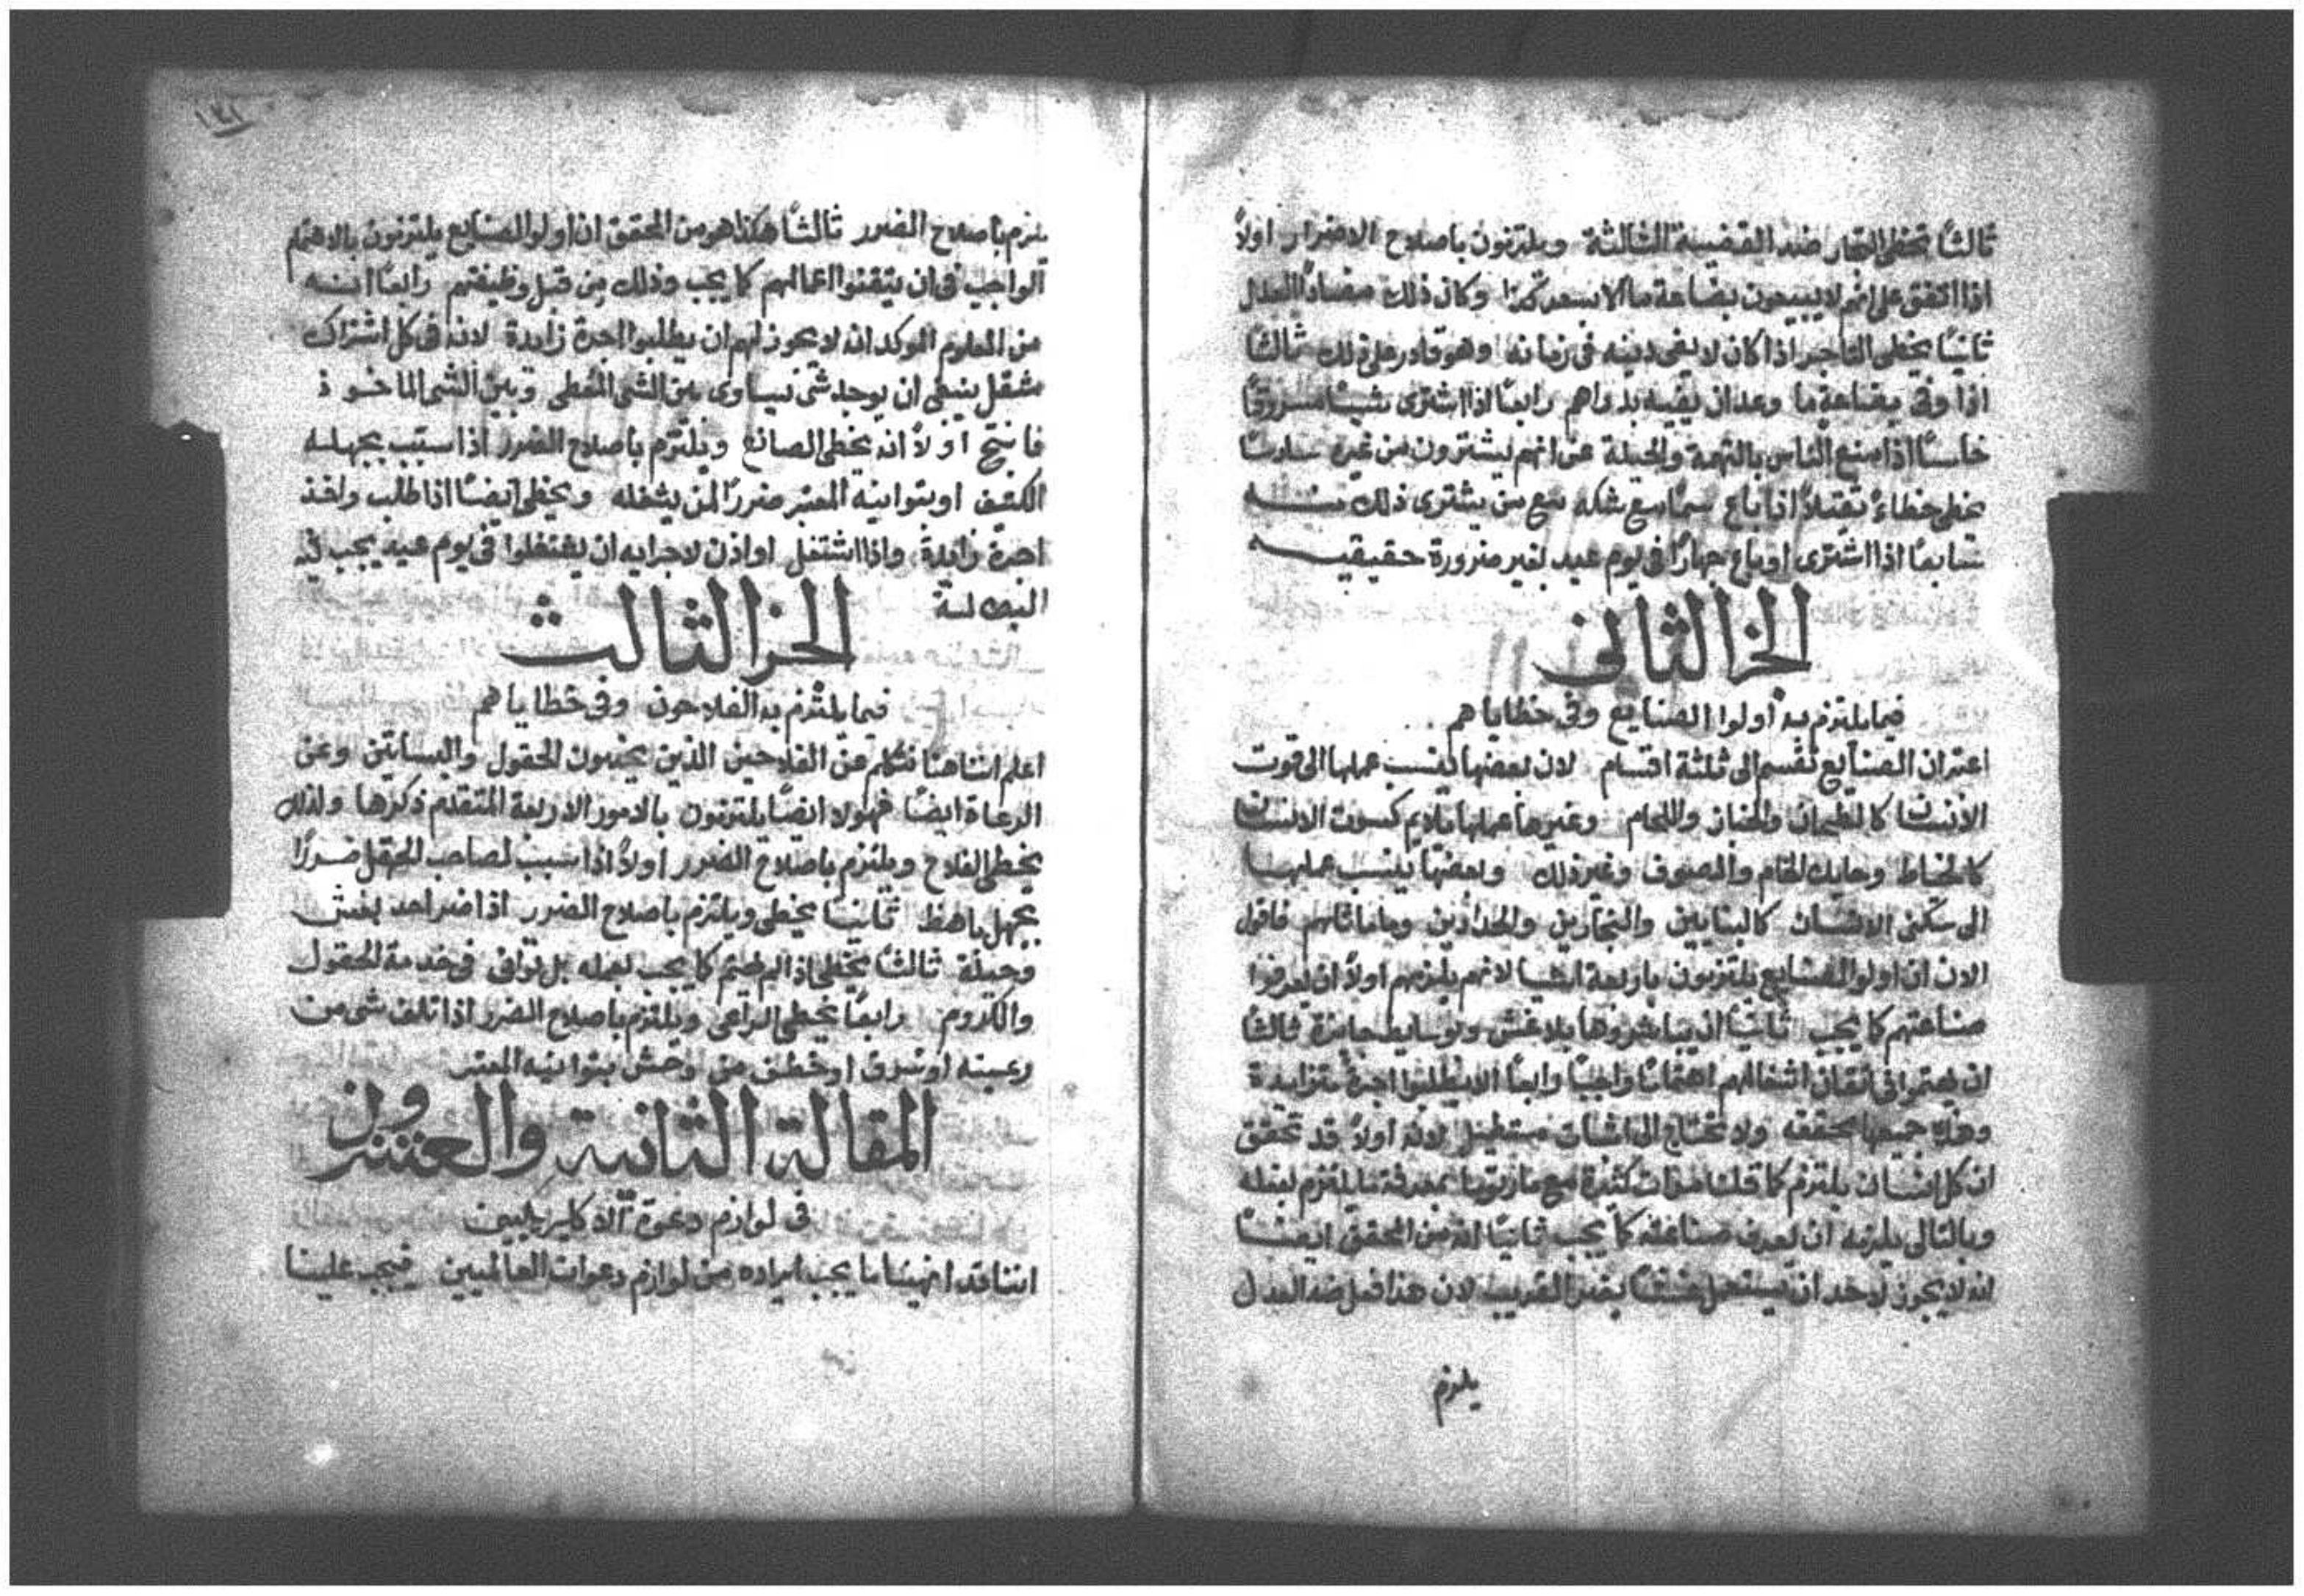 ثالثاً تخطى التجار ضد القضية الثالثة ويلتزمون باصلاح الاضرار اولاً
اذا اتفق على انهم لا يبيعون بضاعة ما الا بسعر كذا وكان ذلك مضاداً للعدل
ثانياً يخطى التاجر اذا كان لا يفى دينه فى زمانه وهو قادر على ذلك ثالثاً
اذا وفى بضاعة ما وعد ان يفيه بدراهم رابعاً اذا اشترى شيئاً مسروقاً
خامساً اذا منع الناس بالتهمة والحيلة عن انهم يشترون من غيره سادساً
يخطى خطاءً ثقيلاً اذا باع سماً مع شكه مع من يشترى ذلك منه
سابعاً اذا اشترى او باع جهاراً فى يوم عيد لغير ضرورة حقيقيه
الجزا الثانى
فيما يلتزم به أولوا الصنايع وفى خطاياهم
اعتر ان الصنايع تقسم الى ثلثة اقسام لان بعضها ينسب عملها الى قوت
الانسان كالطحان والخباز واللحام وغيرها عملها يلايم كسوت الانسان
كالخياط وحايك الخام والصوف وغير ذلك وبعضها ينسب عملها
الى سكنى الانسان كالبنايين والنجارين والحدادين وما ماثلهم فاقول
الان ان اولوا الصنايع يلتزمون باربعة اشيا لانهم يلزمهم اولاً ان يعرفوا
صناعتهم كما يجب ثانياً ان يباشروها بلا غش وبوسايط جايزة ثالثاً
ان يهتموا فى اتقان اشغالهم اهتماماً واجباً رابعاً الا يطلبوا اجرة متزايدة
وهذه جميعها محققه ولا تحتاج الى اثبات مستطيل لانه اولاً قد تحقق
ان كل انسان يلتزم كما قلنا مرات كثيرة بمعرفة ما يلتزم بفعله
وبالتالى يلزمه ان يعرف صناعته كما يجب ثانياً انه من المحقق ايضاً
انه لا يجوز لاحد ان يستعمل غشاً بضر القريب لان هذا فعل ضد العدل
يلزم
١٣١
يلزم باصلاح الضرر ثالثاً هكذا هو من المحقق ان اولوا الصنايع يلتزمون بالاهتمام
الواجب فى ان يتقنوا اعمالهم كما يجب وذلك من قبل وظيفتهم رابعاً انه
من المعلوم الموكد انه لا يجوز لهم ان يطلبوا اجرة زايدة لانه فى كل اشتراك
مثقل ينبغى ان يوجد شى تساوى بين الشى المعطى وبين الشى الماخوذ
فانتج اولاً انه يخطى الصانع ويلتزم باصلاح الضرر اذا سبب بجهله
الكثيف او بتوانيه المعتبر ضرراً لمن يشغله ويخطى ايضاً اذا طلب واخذ
اجرة زايدة واذا اشتغل او اذن لاجرايه ان يشتغلوا فى يوم عيد يجب فيه
البطالة
الجزا الثالث
فيما يلتزم به الفلاحون وفى خطاياهم
اعلم اننا هنا نتكلم عن الفلاحين الذين يخدمون الحقول والبساتين وعن
الرعاة ايضاً فهولا ايضاً يلتزمون بالامور الاربعة المتقدم ذكرها ولذلك
يخطى الفلاح ويلتزم باصلاح الضرر اولاً اذا سبب لصاحب الحقل ضرراً
بجهل باهظ ثانياً يخطى ويلتزم باصلاح الضرر اذا ضر احد بغش
وحيلة ثالثاً يخطى اذا لم يهتم كما يجب بعمله بل توانى فى خدمة الحقول
والكروم رابعاً يخطى الراعى ويلتزم باصلاح الضرر اذا تلف شى من
رعيته او سرق او خطف من وحش بتوانيه المعتبر
المقالة الثانية والعشرون
فى لوازم دعوة الاكليريكيين
اننا قد انهينا ما يجب ايراده من لوازم دعوات العالميين فيجب علينا
من